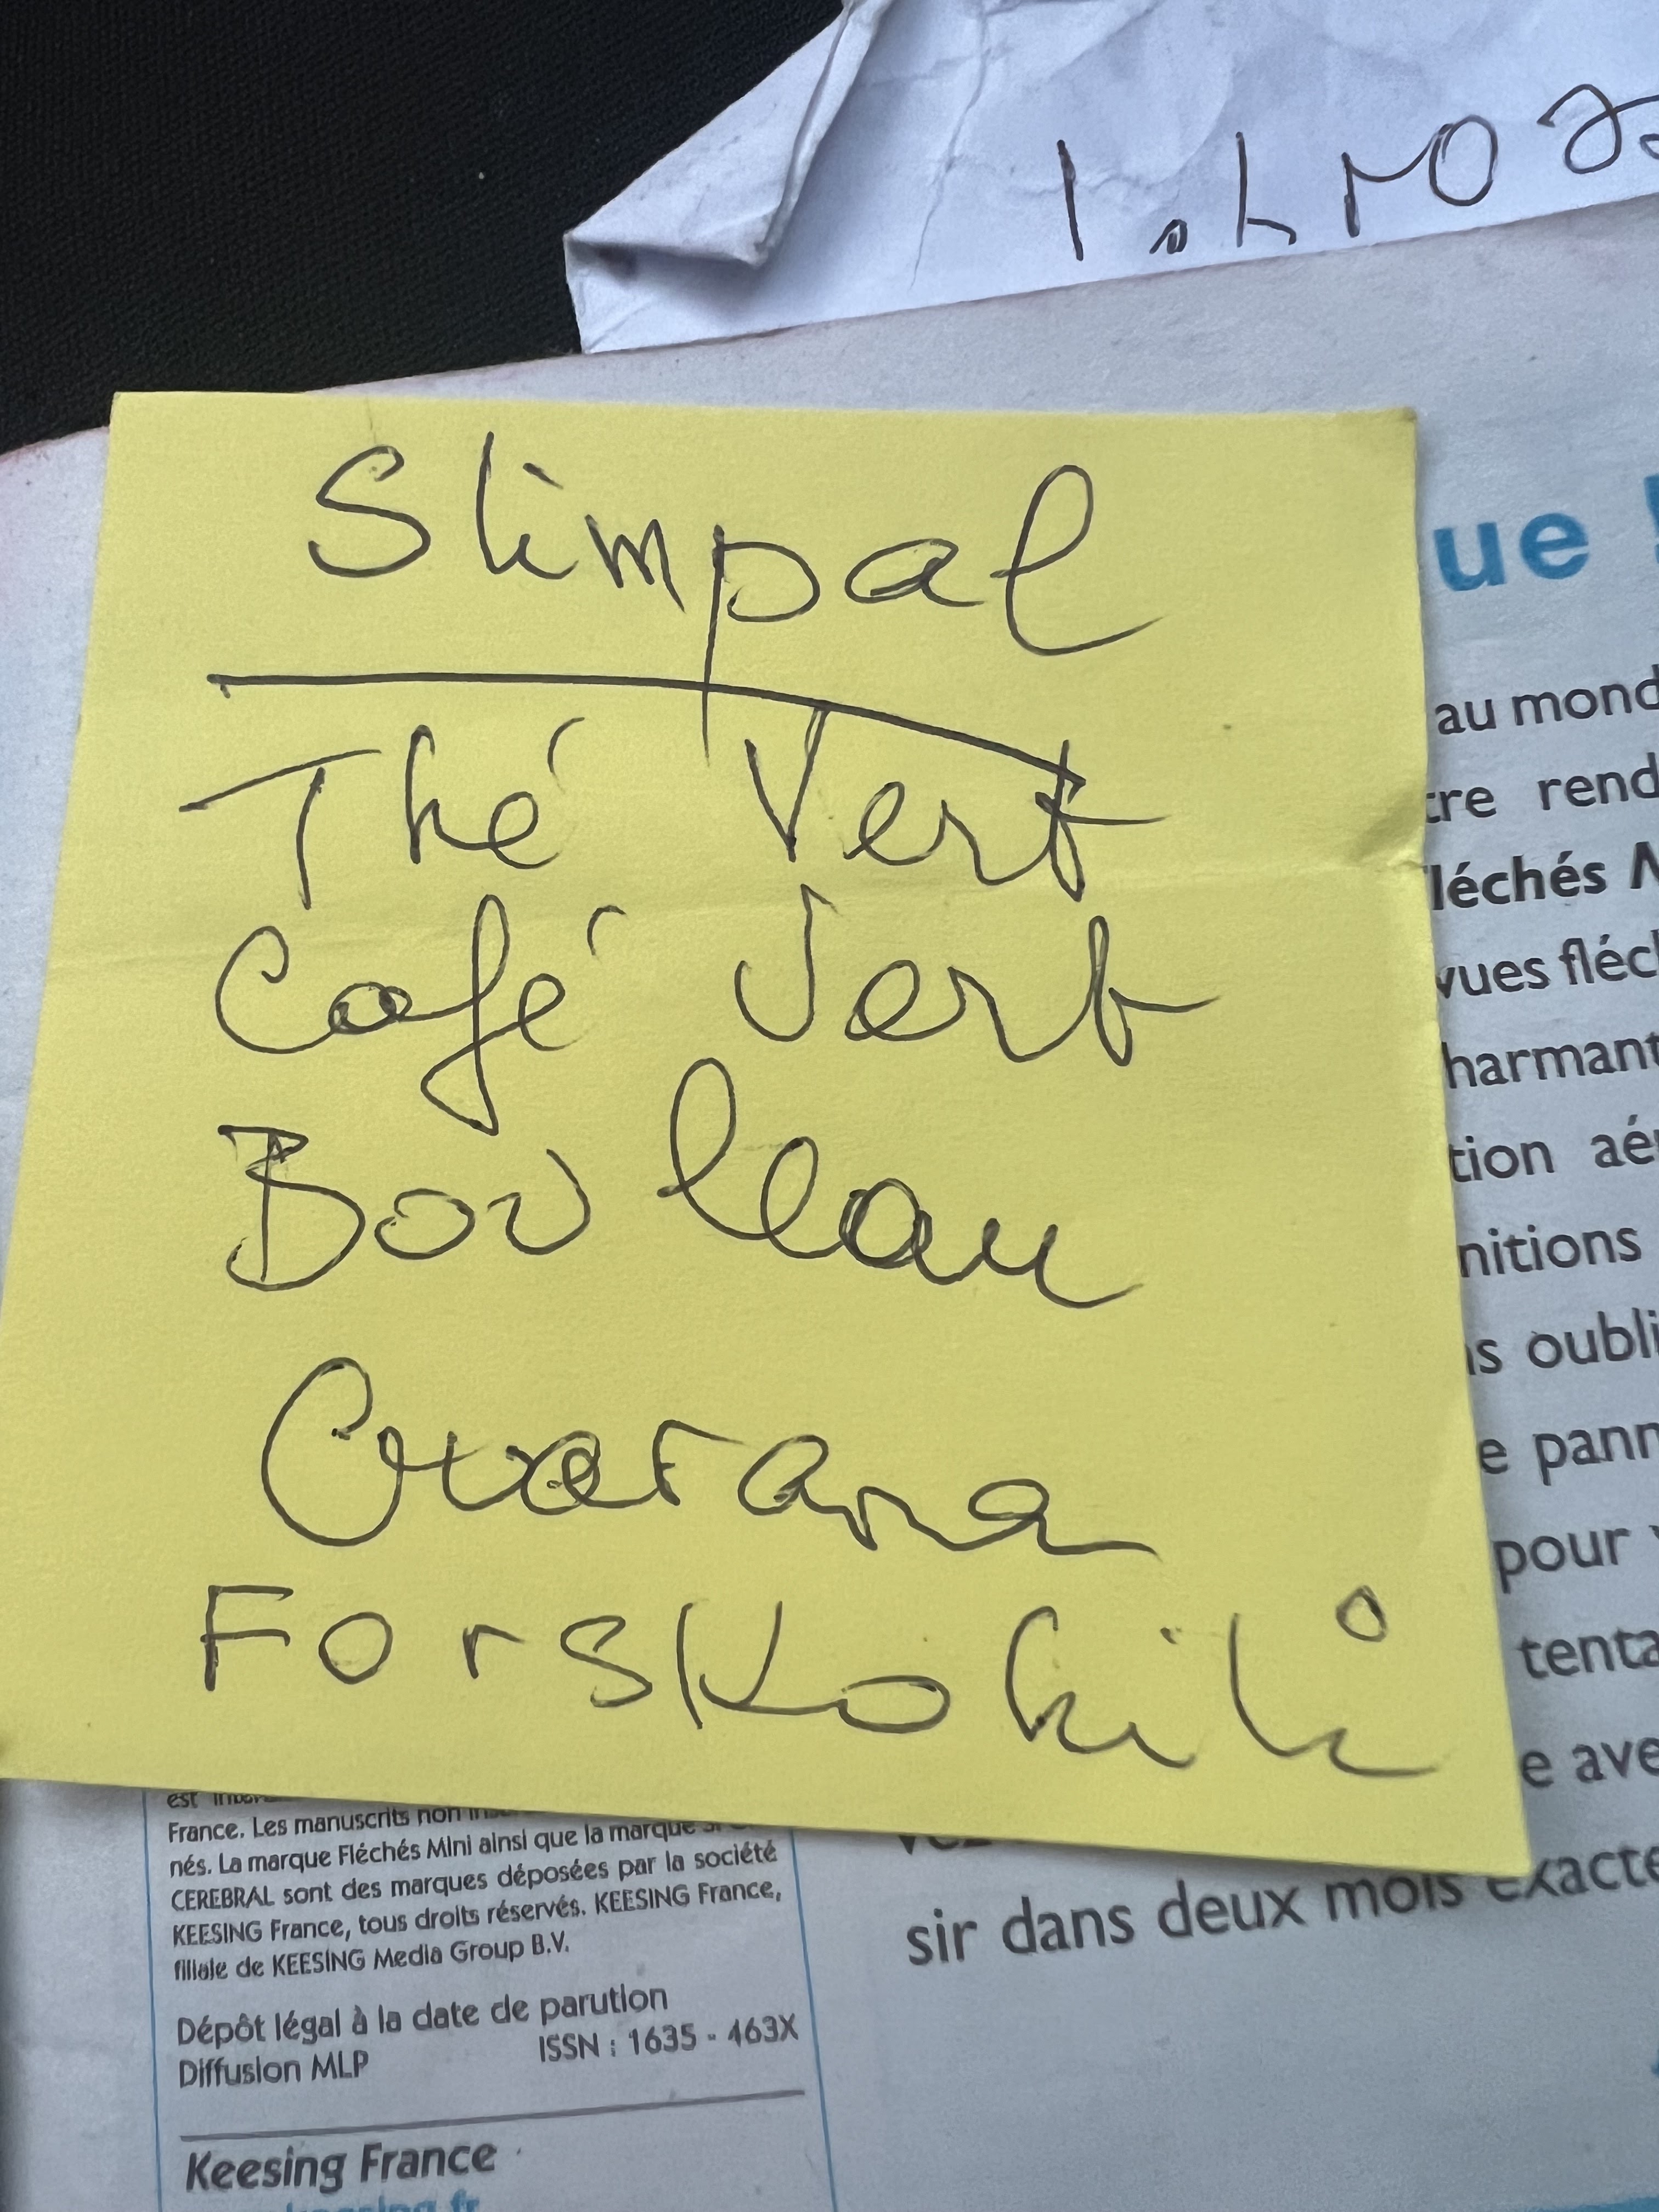 Slimpal
Thé Vert
Café Vert
Bouleau
Guarana
Forskohili
ue !
au mond
tre rend
léchés M
vues fléc
harmant
tion aér
nitions
ns oubli
e pann
pour
tenta
e ave
sir dans deux mois exacte
est
France. Les manuscrits non
nés. La marque Fléchés Mini ainsi que la marque
CEREBRAL sont des marques déposées par la société
KEESING France, tous droits réservés. KEESING France,
filiale de KEESING Media Group B.V.
Dépôt légal à la date de parution
Diffusion MLP ISSN : 1635 - 463X
Keesing France